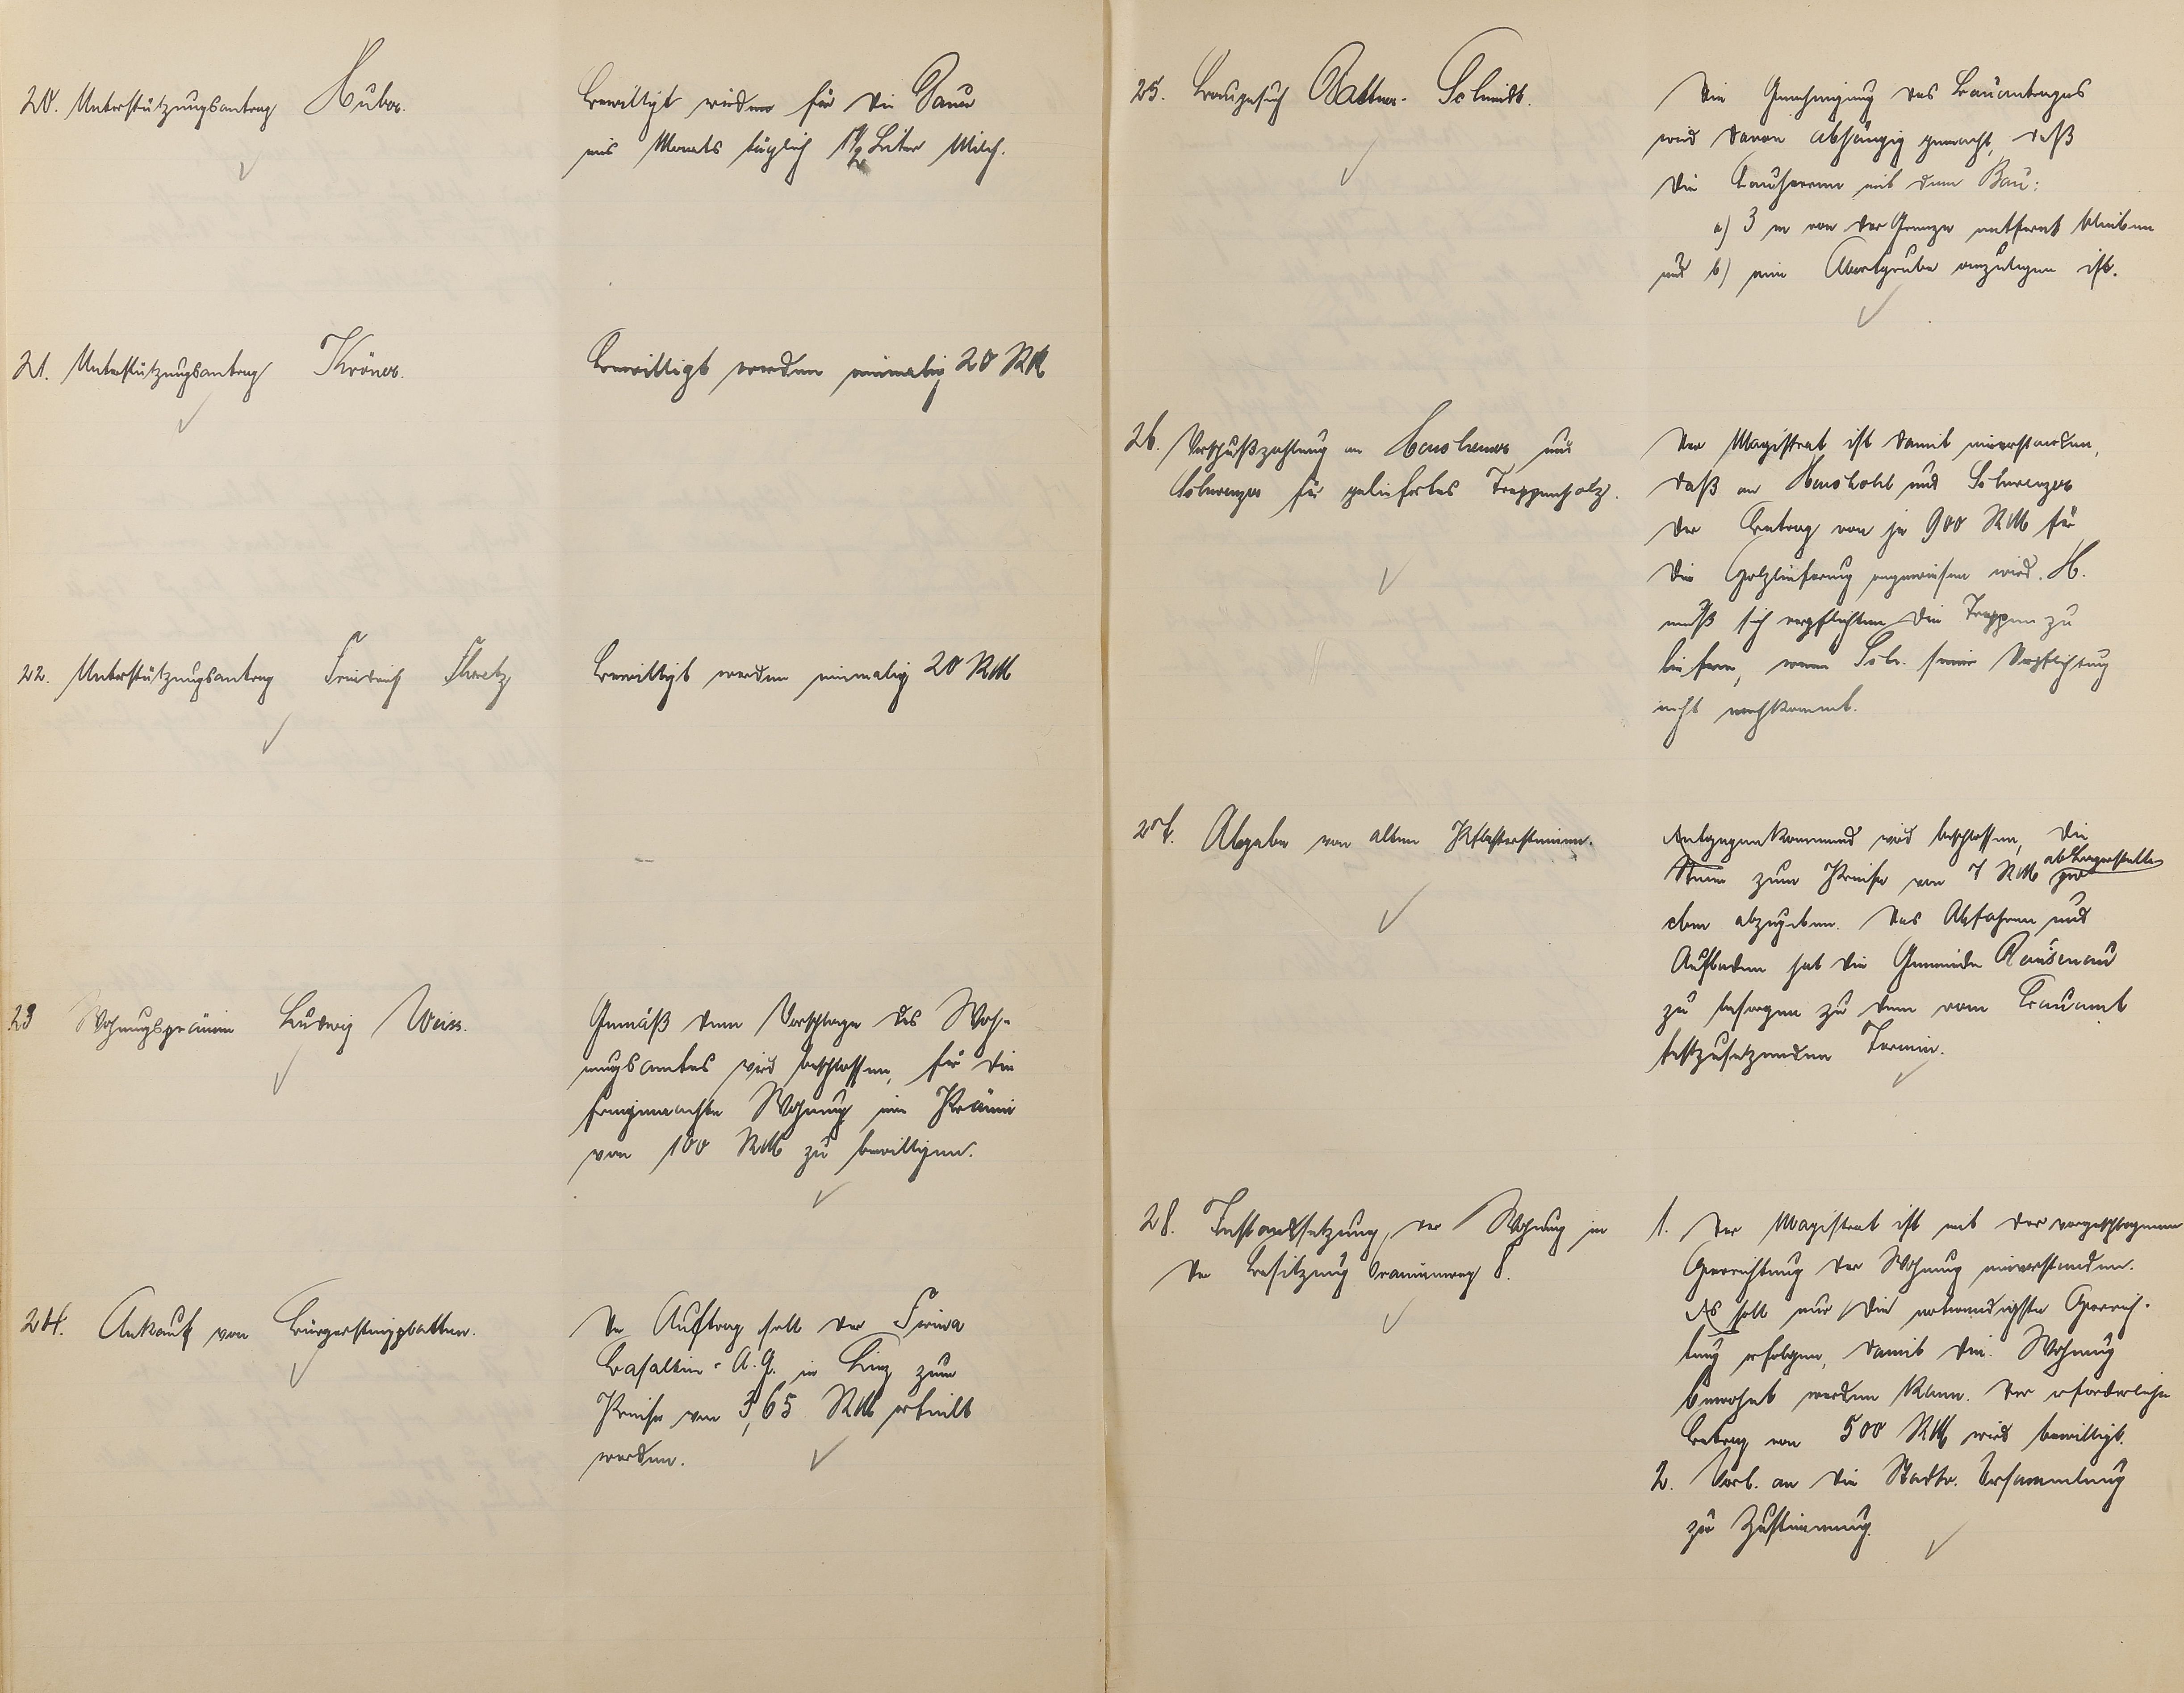 20. Unterstützungsantrag Huber.
Bewilligt werden für die Dauer
eines Monats täglich 1 1/2 Liter Milch.
21. Unterstützungsantrag Kröner.
Bewilligt werden einmalig 20 RM
22. Unterstützungsantrag Friedrich
Bewilligt werden einmalig 20 RM
23 Wohnungsprämie Ludwig Weiss.
Gemäß dem Vorschlage des Woh-
nungsamtes wird beschlossen, für die
freigemachte Wohnung eine Prämie
von 100 RM zu bewilligen.
24. Ankauf von Bürgersteigplatten.
Der Auftrag soll der Firma
Basaltin-A.G. in Linz zum
Preise von 3,65 RM erteilt
werden.
25. Baugesuch Schmidt.
Die Genehmigung des Bauantrages
wird davon abhängig gemacht, daß
die Bauherren mit dem Bau:
a) 3 m von der Grenze entfernt bleiben
und b) eine Abortgrube anzulegen ist.
26. Vorschußzahlung an und
Schwenzer für geliefertes Treppenholz.
Der Magistrat ist damit einverstanden,
daß an und Schwenzer
der Betrag von je 900 RM für
die Holzlieferung angewiesen wird. H.
muß sich verpflichten die Treppen zu
liefern, wenn Sch. seiner Verpflichtung
nicht nachkommt.
27. Abgabe von alten Pflastersteinen.
Entgegenkommend wird beschlossen, die
Steine zum Preise von 7 RM pro ab Lagerstelle
cbm abzugeben. Das Abfahren und
Aufladen hat die Gemeinde
zu besorgen zu dem vom Bauamt
festzusetzenden Termin.
28. Instandsetzung der Wohnung in
der Besitzung Oranienweg 8.
1. Der Magistrat ist mit der vorgeschlagenen
Herrichtung der Wohnung einverstanden.
Es soll nur die notwendigste Herrich-
tung erfolgen, damit die Wohnung
bewohnt werden kann. Der erforderliche
Betrag von 500 RM wird bewilligt.
2. Vorl. an die Stadtv. Versammlung
zur Zustimmung.